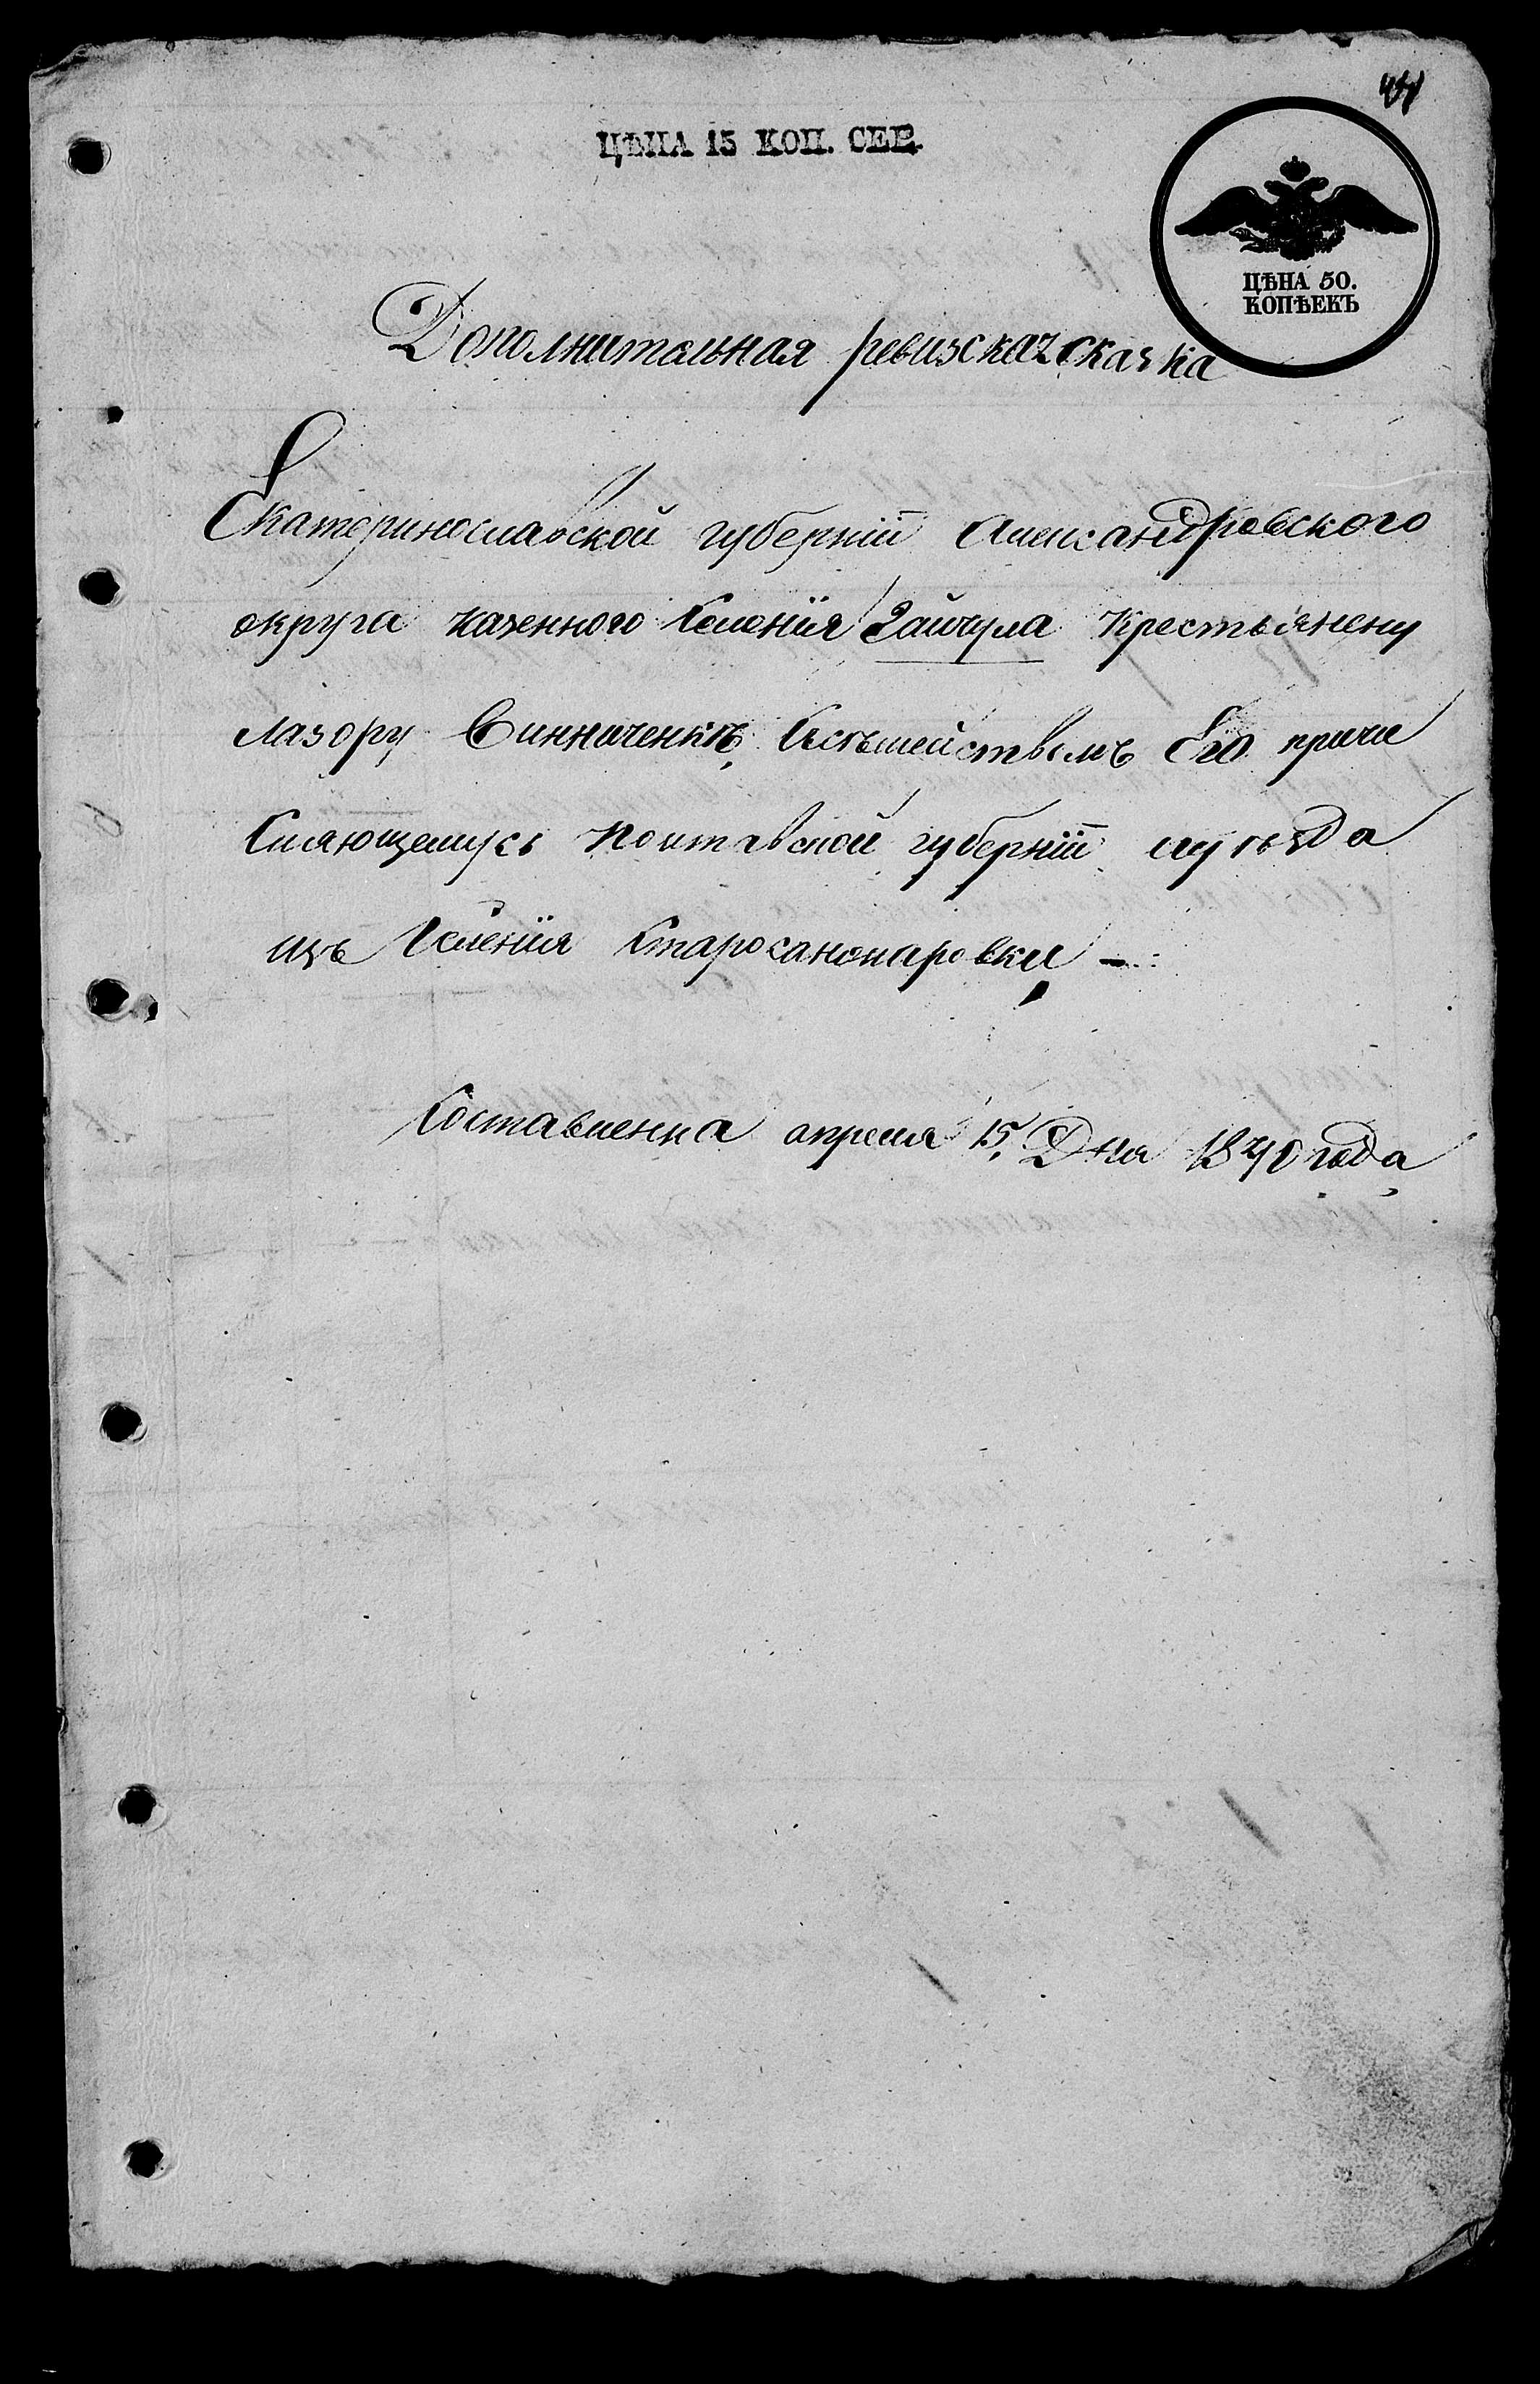 ЦѢНА 15 КОП. СЕР.
ЦѢНА 50.
КОПѢЕКЪ
Дополнителная ревизская скаска
Екатеринославской губерніи Александровского
округа казенного селенія Гайчула крестьянену
Лазору Винниченку Ксѣмействомъ Его причи
сляющемусь Полтавской губерніи и уѣзда
изъ селенія
Составленна апреля 15, Дня 1840 года